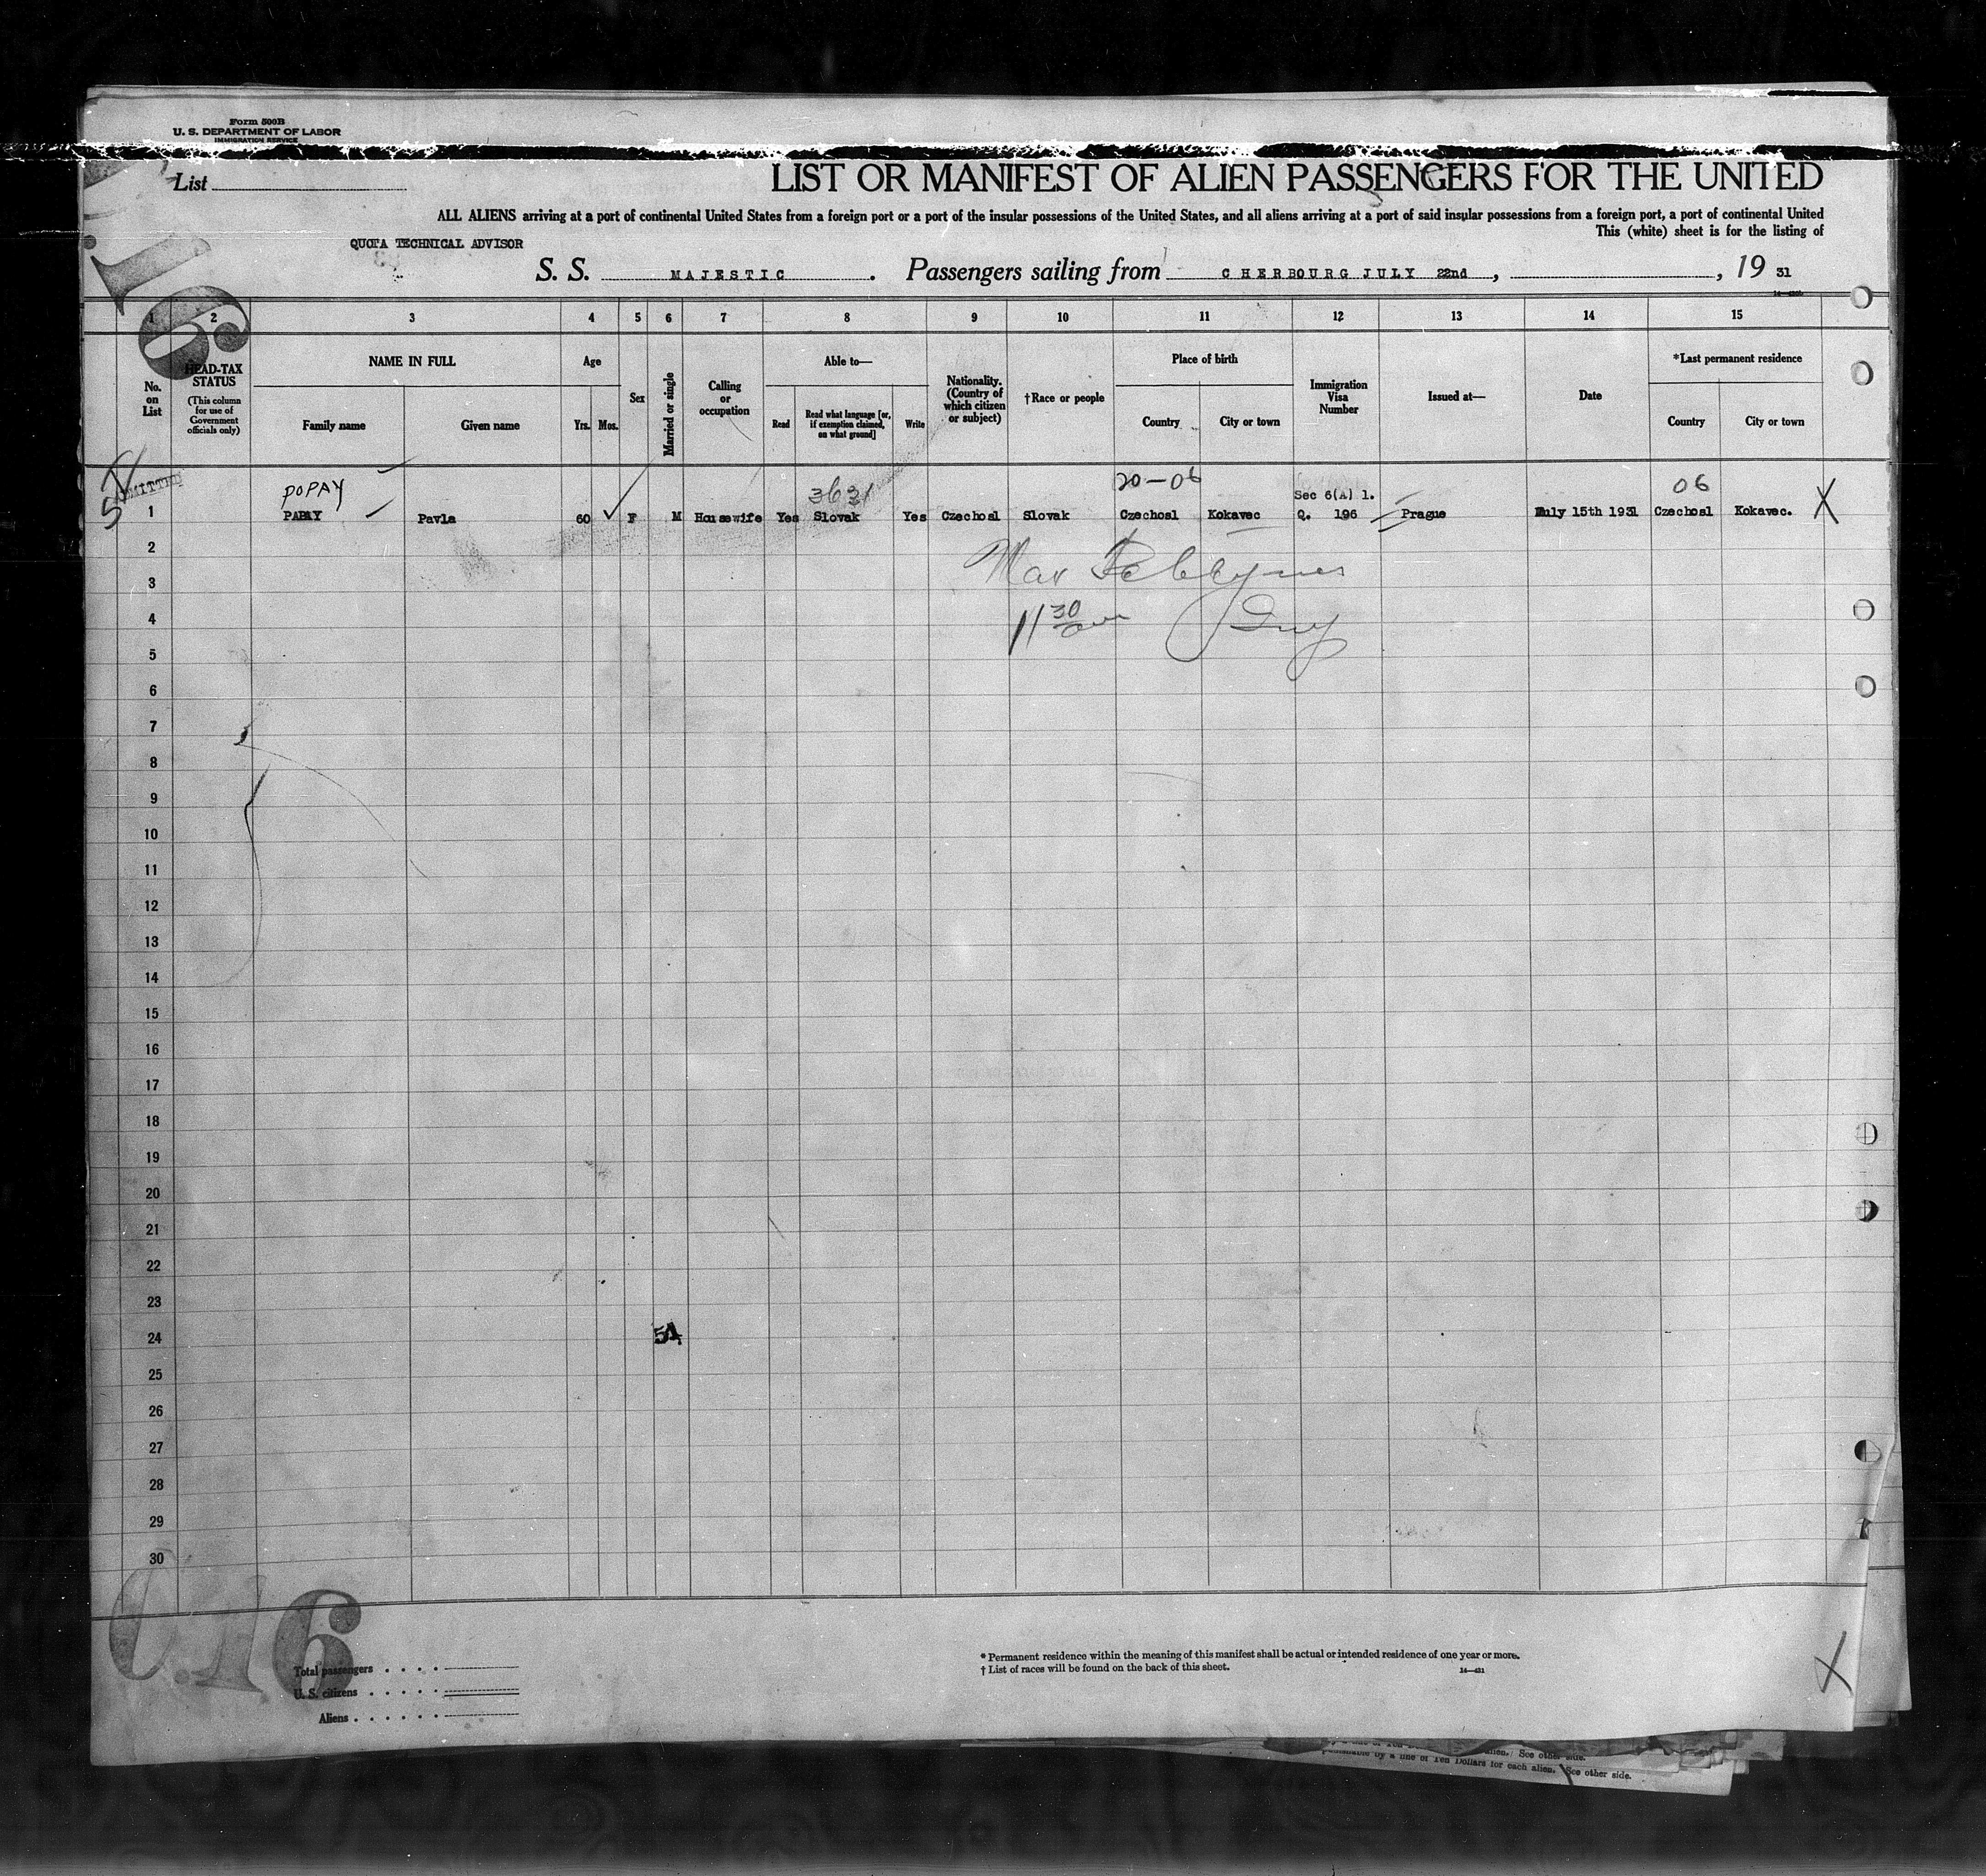 Form 500B
U. S. DEPARTMENT OF LABOR
IMMIGRATION SERVICE
List
LIST OR MANIFEST OF ALIEN PASSENGERS FOR THE UNITED
ALL ALIENS arriving at a port of continental United States from a foreign port or a port of the insular possessions of the United States, and all aliens arriving at a port of said insular possessions from a foreign port, a port of continental United
This (white) sheet is for the listing of
QUOTA TECHNICAL ADVISOR
S. S. MAJESTIC. Passengers sailing from CHERBOURG JULY 22nd, , 19 31
1 2 3 4 5 6 7 8 9 10 11 12 13 14 15
No. on List
HEAD-TAX STATUS
(This column for use of Government officials only)
NAME IN FULL
Family name Given name
Age
Yrs. Mos.
Sex
Married or single
Calling or occupation
Able to—
Read
Read what language [or, if exemption claimed, on what ground]
Write
Nationality. (Country of which citizen or subject)
†Race or people
Place of birth
Country City or town
Immigration Visa Number
Issued at—
Date
*Last permanent residence
Country City or town
POPAY 3631 20-06 Sec 6(A) 1. 06
1 PAPAY Pavla 60 F M Housewife Yes Slovak Yes Czechosl Slovak Czechosl Kokavec Q. 196 Prague July 15th 1931 Czechosl Kokavec. X
2
3
11 30
4
5
6
7
8
9
10
11
12
13
14
15
16
17
18
19
20
21
22
23
24
25
26
27
28
29
30
16
Total passengers
U. S. citizens
Aliens
* Permanent residence within the meaning of this manifest shall be actual or intended residence of one year or more.
† List of races will be found on the back of this sheet.
X
alien. See other side.
punishable by a fine of Ten Dollars for each alien. See other side.